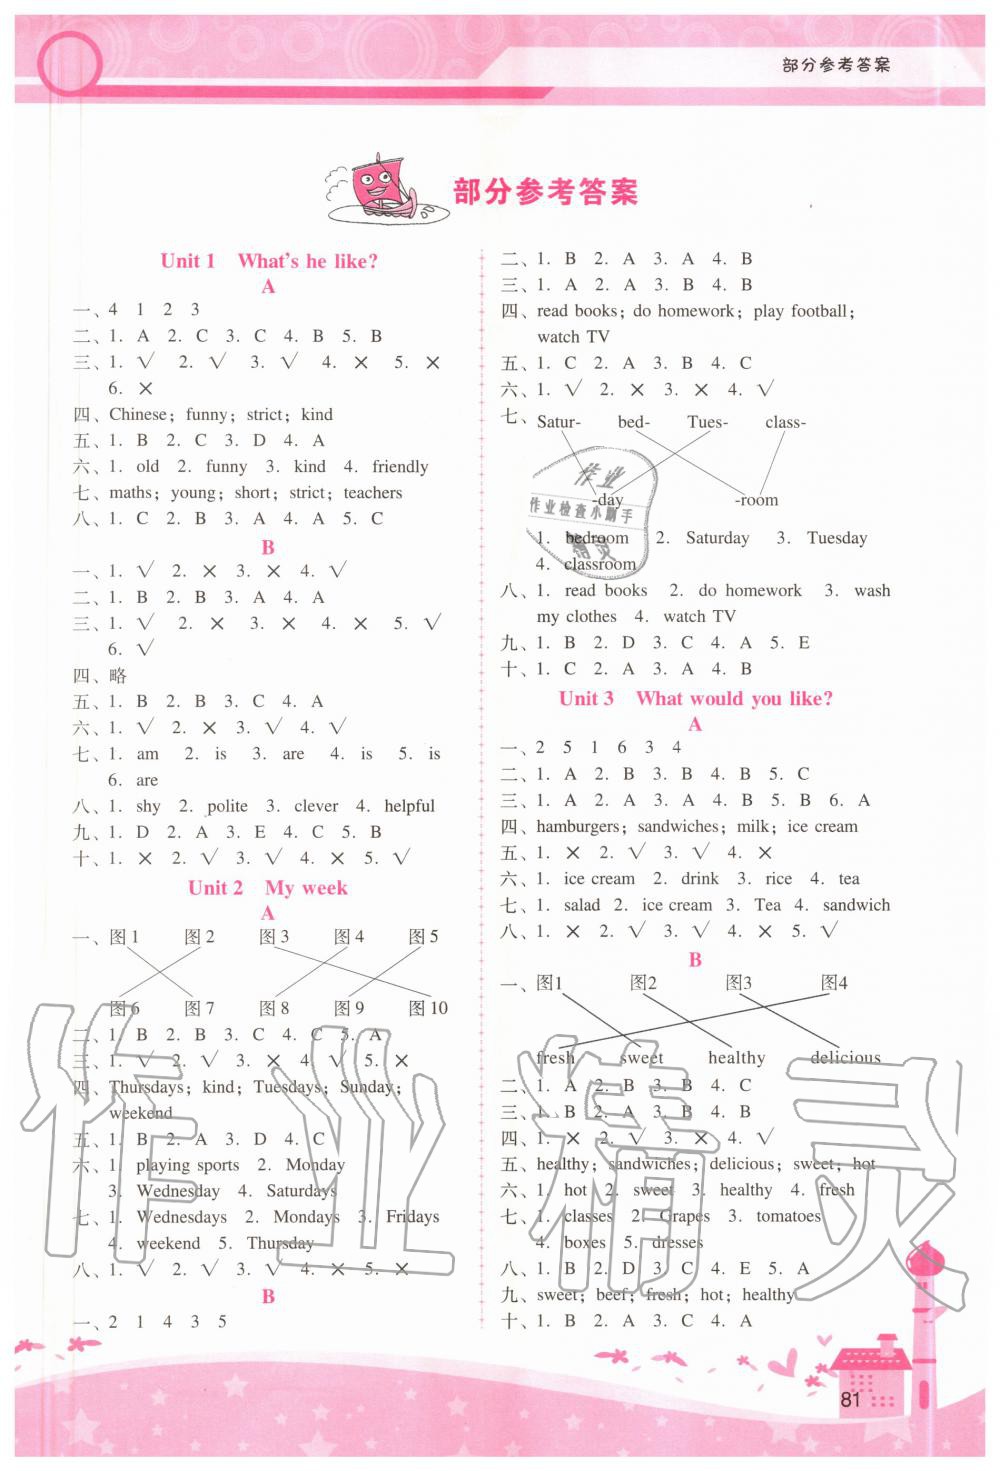 部分参考答案
部分参考答案
Unit 1 What's he like?
A
一、4 1 2 3
二、1. A 2. C 3. C 4. B 5. B
三、1. √ 2. √ 3. √ 4. × 5. ×
6. ×
四、Chinese; funny; strict; kind
五、1. B 2. C 3. D 4. A
六、1. old 2. funny 3. kind 4. friendly
七、maths; young; short; strict; teachers
八、1. C 2. B 3. A 4. A 5. C
B
一、1. √ 2. × 3. × 4. √
二、1. B 2. B 3. A 4. A
三、1. √ 2. × 3. × 4. × 5. √
6. √
四、略
五、1. B 2. B 3. C 4. A
六、1. √ 2. × 3. √ 4. √
七、1. am 2. is 3. are 4. is 5. is
6. are
八、1. shy 2. polite 3. clever 4. helpful
九、1. D 2. A 3. E 4. C 5. B
十、1. × 2. √ 3. √ 4. × 5. √
Unit 2 My week
A
一、图1 图2 图3 图4 图5
图6 图7 图8 图9 图10
二、1. B 2. B 3. C 4. C 5. A
三、1. √ 2. √ 3. × 4. √ 5. ×
四、Thursdays; kind; Tuesdays; Sunday;
weekend
五、1. B 2. A 3. D 4. C
六、1. playing sports 2. Monday
3. Wednesday 4. Saturdays
七、1. Wednesdays 2. Mondays 3. Fridays
4. weekend 5. Thursday
八、1. √ 2. √ 3. √ 4. × 5. ×
B
一、2 1 4 3 5
二、1. B 2. A 3. A 4. B
三、1. A 2. A 3. B 4. B
四、read books; do homework; play football;
watch TV
五、1. C 2. A 3. B 4. C
六、1. √ 2. × 3. × 4. √
七、Satur- bed- Tues- class-
-day -room
1. bedroom 2. Saturday 3. Tuesday
4. classroom
八、1. read books 2. do homework 3. wash
my clothes 4. watch TV
九、1. B 2. D 3. C 4. A 5. E
十、1. C 2. A 3. A 4. B
Unit 3 What would you like?
A
一、2 5 1 6 3 4
二、1. A 2. B 3. B 4. B 5. C
三、1. A 2. A 3. A 4. B 5. B 6. A
四、hamburgers; sandwiches; milk; ice cream
五、1. × 2. √ 3. √ 4. ×
六、1. ice cream 2. drink 3. rice 4. tea
七、1. salad 2. ice cream 3. Tea 4. sandwich
八、1. × 2. √ 3. √ 4. × 5. √
B
一、图1 图2 图3 图4
fresh sweet healthy delicious
二、1. A 2. B 3. B 4. C
三、1. B 2. A 3. B 4. B
四、1. × 2. √ 3. × 4. √
五、healthy; sandwiches; delicious; sweet; hot
六、1. hot 2. sweet 3. healthy 4. fresh
七、1. classes 2. Grapes 3. tomatoes
4. boxes 5. dresses
八、1. B 2. D 3. C 4. E 5. A
九、sweet; beef; fresh; hot; healthy
十、1. B 2. A 3. C 4. A
81
作业
作业检查小助手
精灵
作业精灵